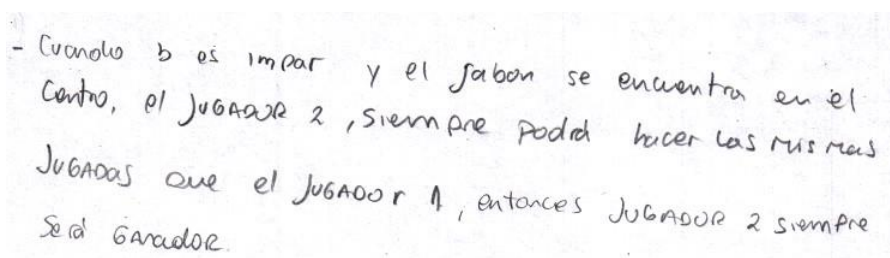 - Cuando b es impar y el jabon se encuentra en el
Centro, el JUGADOR 2, siempre podrá hacer las mismas
JUGADAS que el JUGADOR 1, entonces JUGADOR 2 siempre
Será GANADOR.